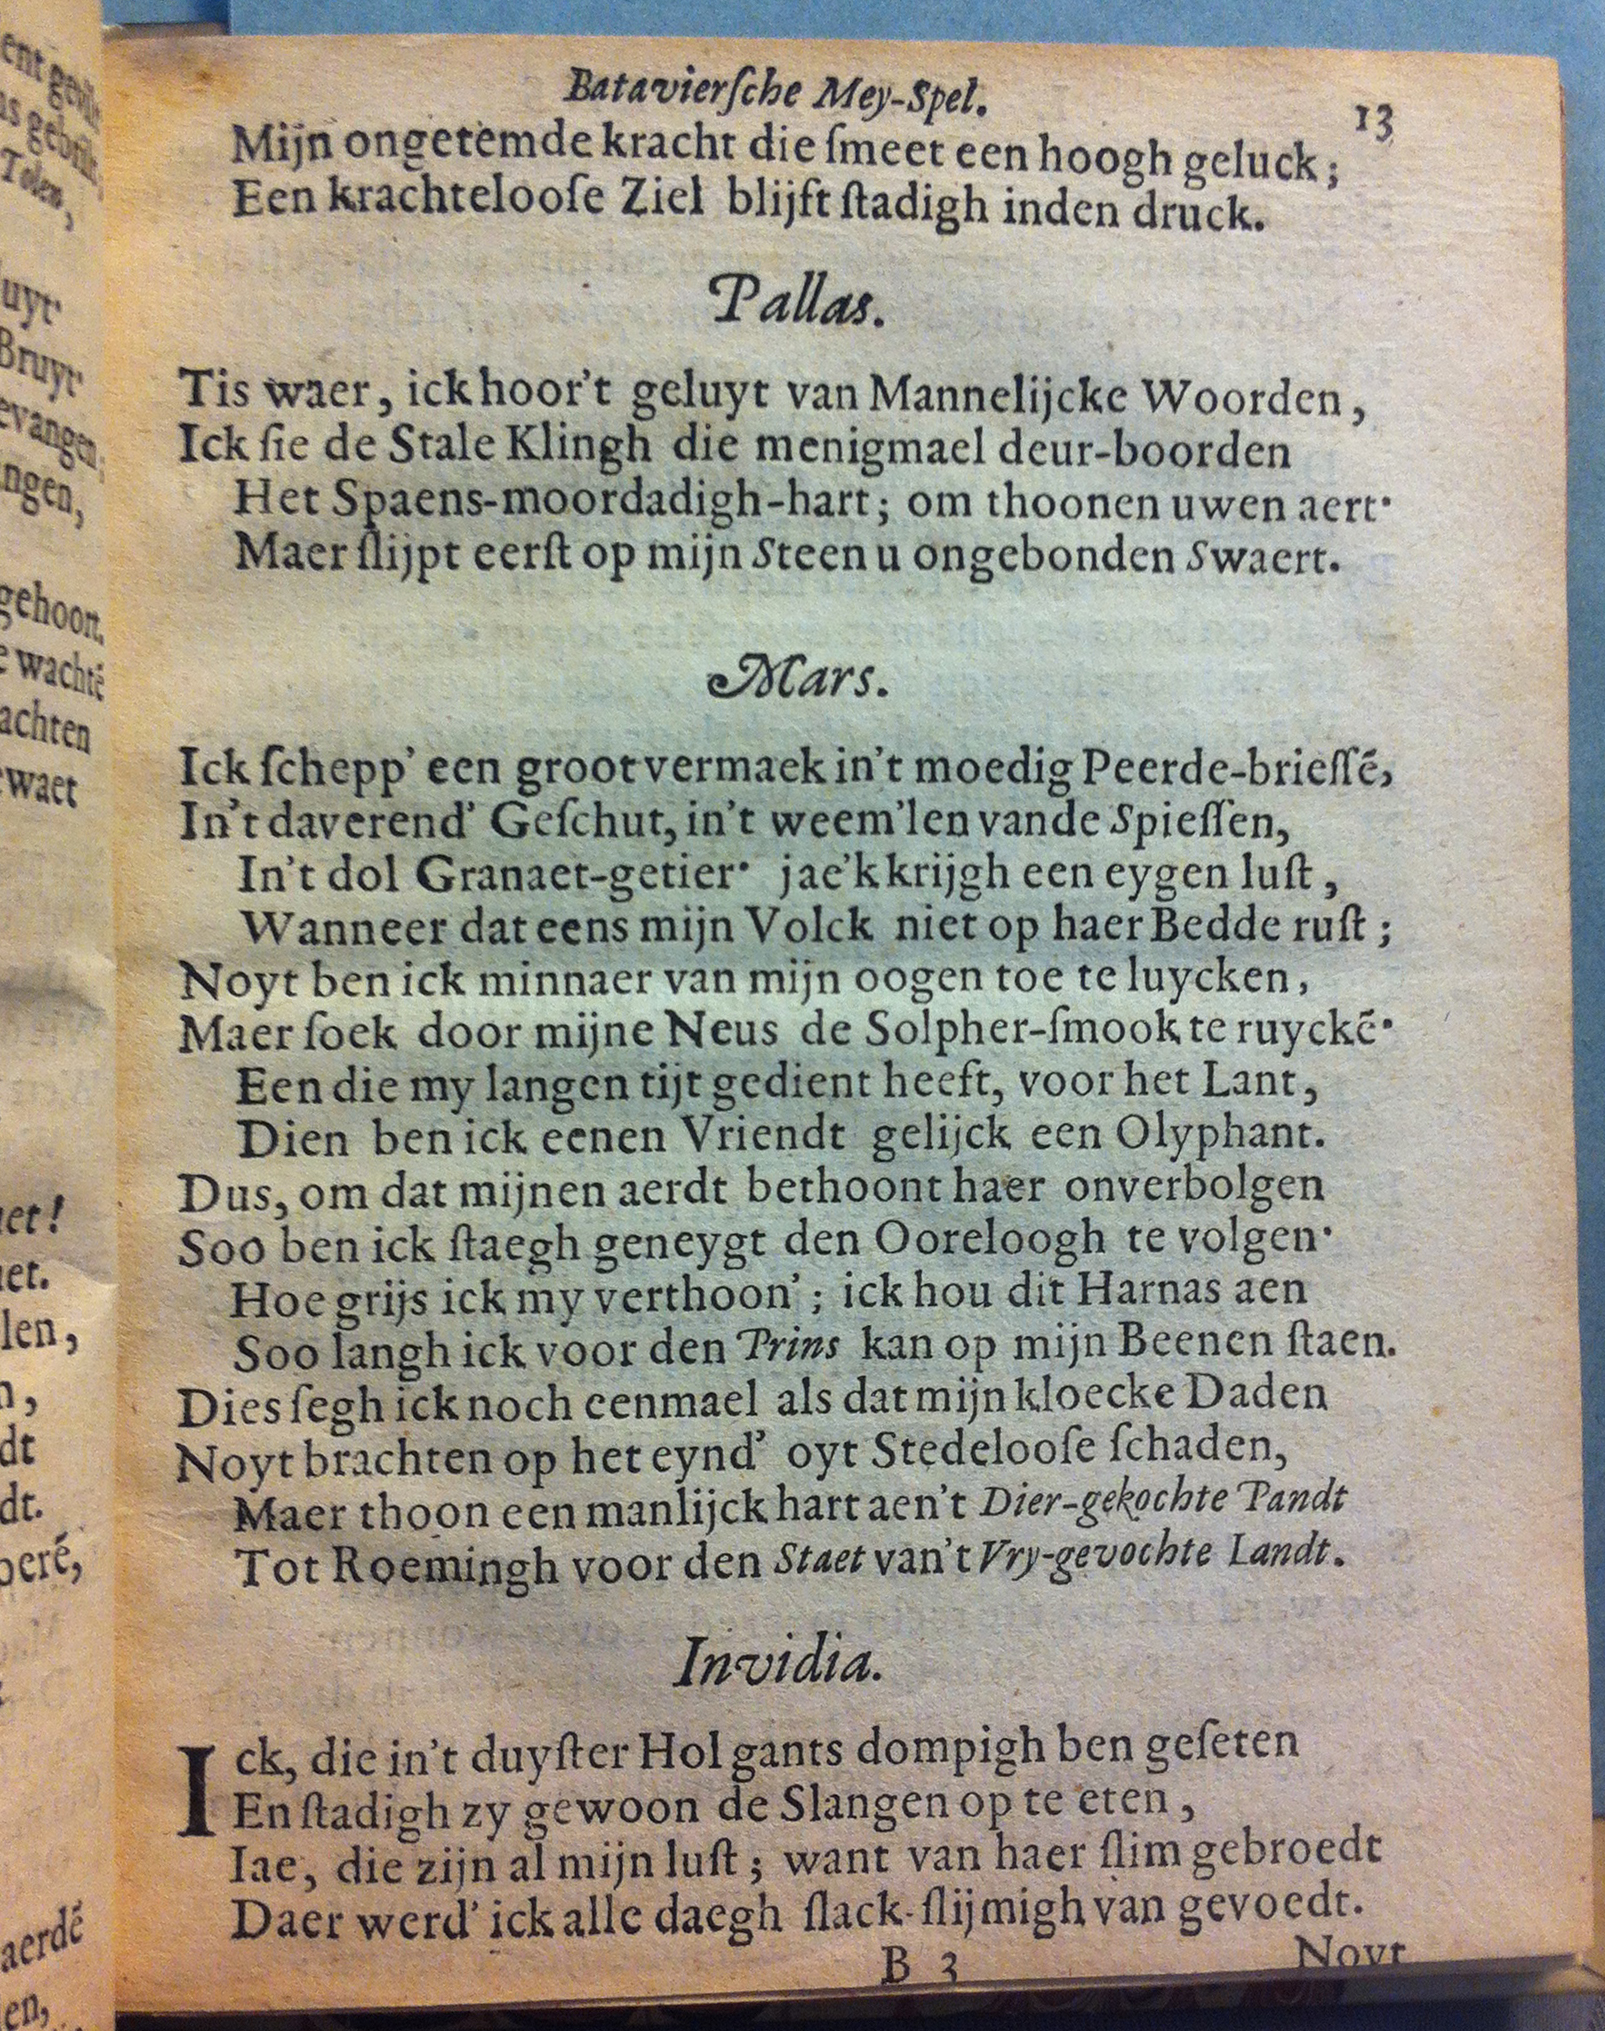 Bataviersche Mey-Spel.
13
Mijn ongetemde kracht die ſmeet een hoogh geluck;
Een krachtelooſe Ziel blijft ſtadigh inden druck.
Pallas.
Tis waer, ick hoor't geluyt van Mannelijcke Woorden,
Ick ſie de Stale Klingh die menigmael deur-boorden
Het Spaens-moordadigh-hart; om thoonen uwen aert·
Maer ſlijpt eerſt op mijn Steen u ongebonden Swaert.
Mars.
Ick ſchepp' een groot vermaek in't moedig Peerde-brieſſē,
In't daverend' Geſchut, in't weem'len vande Spieſſen,
In't dol Granaet-getier· jae'k krijgh een eygen luſt,
Wanneer dat eens mijn Volck niet op haer Bedde ruſt;
Noyt ben ick minnaer van mijn oogen toe te luycken,
Maer ſoek door mijne Neus de Solpher-ſmook te ruyckē·
Een die my langen tijt gedient heeft, voor het Lant,
Dien ben ick eenen Vriendt gelijck een Olyphant.
Dus, om dat mijnen aerdt bethoont haer onverbolgen
Soo ben ick ſtaegh geneygt den Ooreloogh te volgen·
Hoe grijs ick my verthoon'; ick hou dit Harnas aen
Soo langh ick voor den Prins kan op mijn Beenen ſtaen.
Dies ſegh ick noch eenmael als dat mijn kloecke Daden
Noyt brachten op het eynd' oyt Stedelooſe ſchaden,
Maer thoon een manlijck hart aen't Dier-gekochte Pandt
Tot Roemingh voor den Staet van't Vry-gevochte Landt.
Invidia.
Ick, die in't duyſter Hol gants dompigh ben geſeten
En ſtadigh zy gewoon de Slangen op te eten,
Iae, die zijn al mijn luſt; want van haer ſlim gebroedt
Daer werd' ick alle daegh ſlack-ſlijmigh van gevoedt.
B 3
Noyt